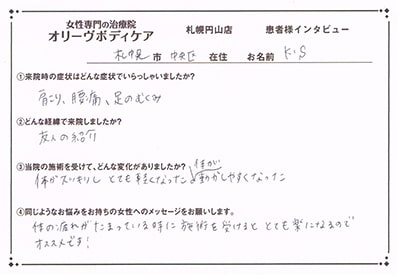 女性専門の治療院
オリーヴボディケア 札幌円山店 患者様インタビュー
札幌 市 中央区 在住 お名前 K.S
①来院時の症状はどんな症状でいらっしゃいましたか?
肩こり、腰痛、足のむくみ
②どんな経緯で来院しましたか?
友人の紹介
③当院の施術を受けて、どんな変化がありましたか?
体がスッキリし とても軽くなった 体が動かしやすくなった
④同じようなお悩みをお持ちの女性へのメッセージをお願いします。
体の疲れがたまっている時に施術を受けると とても楽になるので
オススメです!